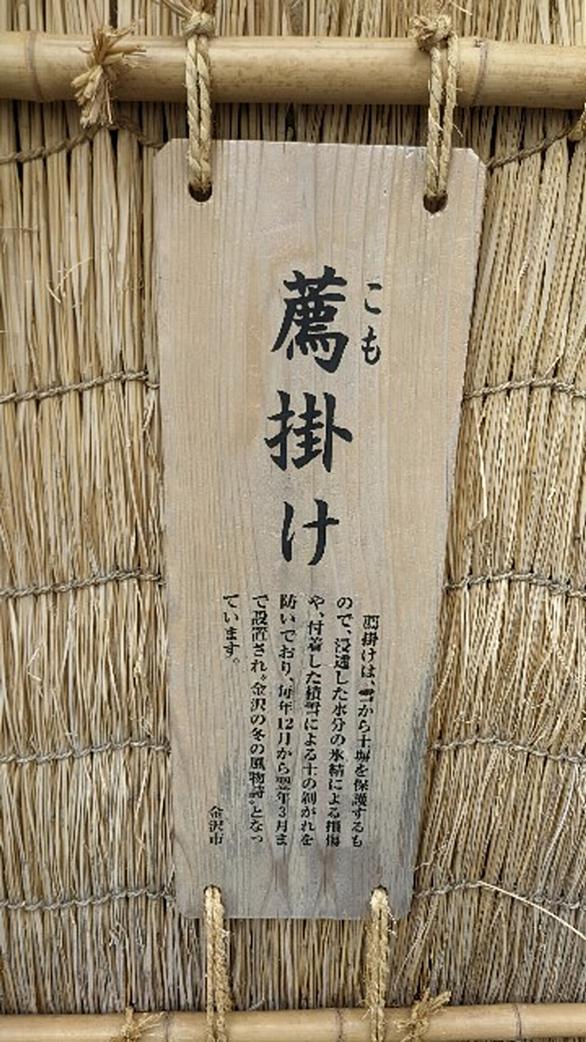 薦掛け
こも
薦掛けは、雪から土塀を保護するも
ので、浸透した水分の氷結による損傷
や、付着した積雪による土の剥がれを
防いでおり、毎年12月から翌年3月ま
で設置され“金沢の冬の風物詩”となっ
ています。
金沢市